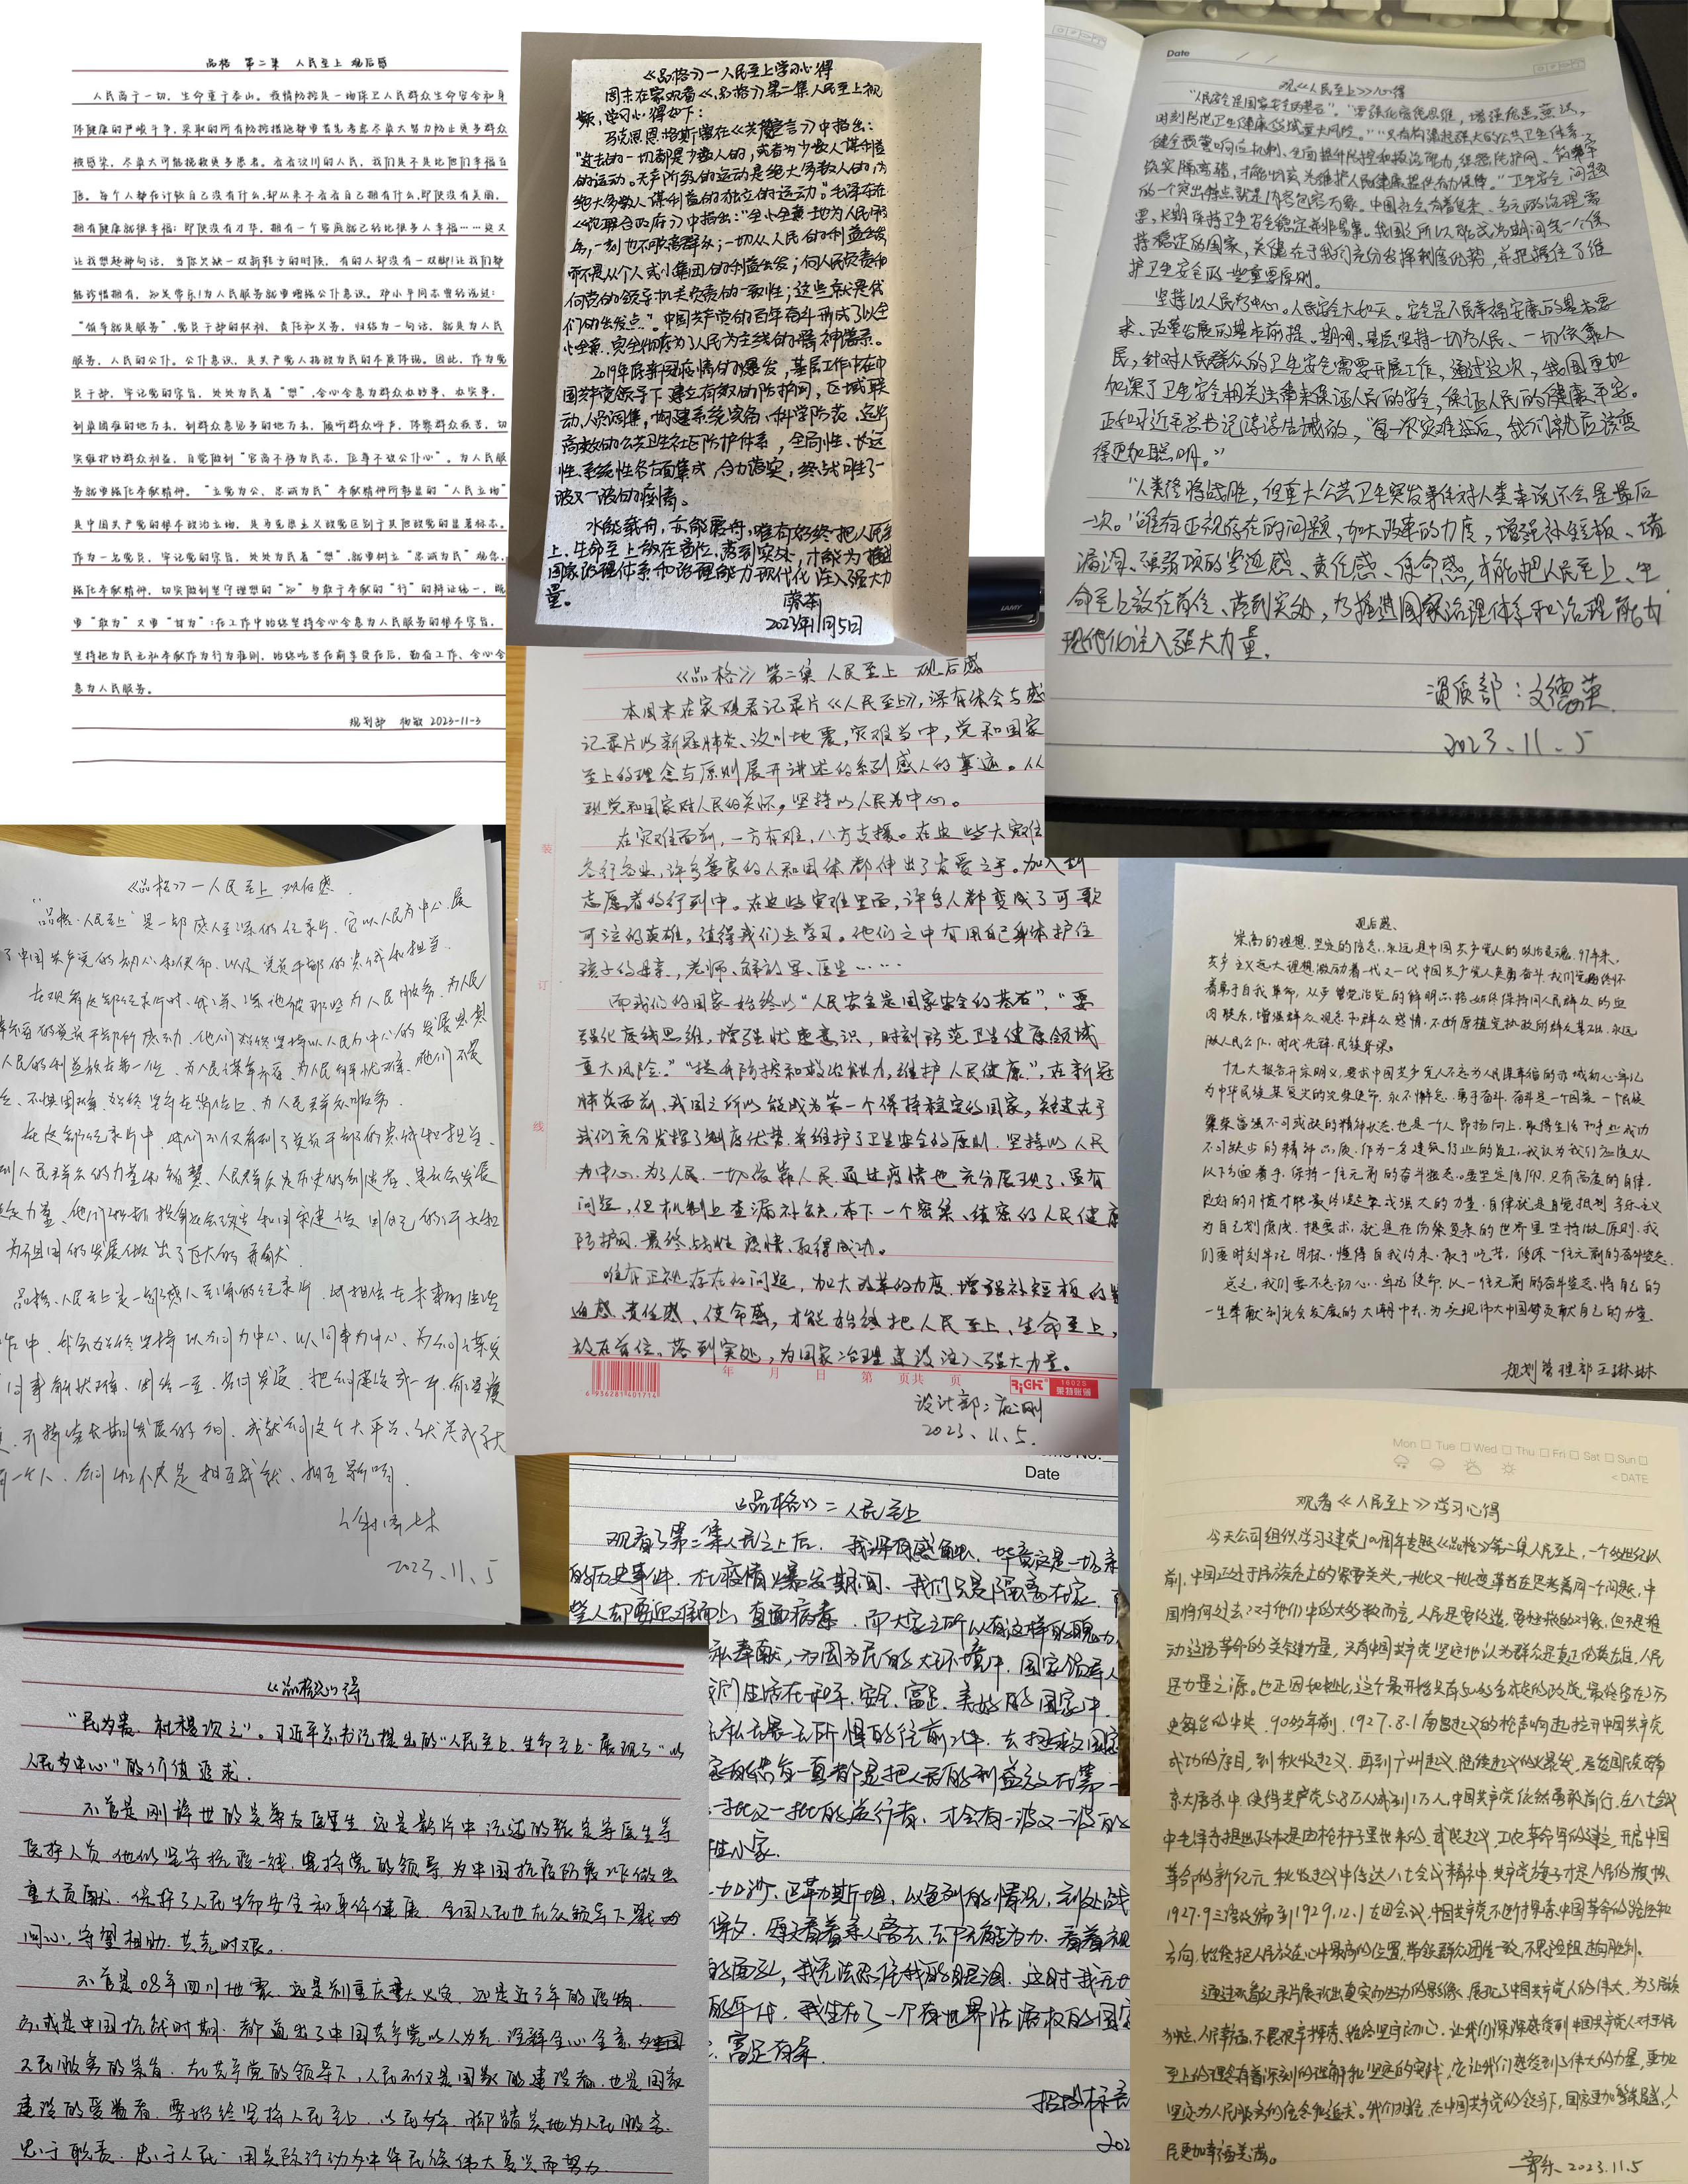 品格 第二集 人民至上 观后感
人民高于一切，生命重于泰山。疫情防控是一场保卫人民群众生命安全和身
体健康的严峻斗争，采取的所有防控措施都要首先考虑尽最大努力防止更多群众
被感染，尽最大可能挽救更多患者。看看汶川的人民，我们是不是比他们幸福百
倍。每个人都在计较自己没有什么，却从来不看看自己拥有什么，即使没有美丽，
拥有健康就很幸福；即使没有才华，拥有一个家庭就已经比很多人幸福……
让我想起那句话，当你欠缺一双新鞋子的时候，有的人却没有一双脚！让我们都
能珍惜拥有，知足常乐！为人民服务就要增强公仆意识。邓小平同志曾经说过：
“领导就是服务”，党员干部的权利、责任和义务，归结为一句话，就是为人民
服务，人民的公仆。公仆意识，是共产党人执政为民的本质体现。因此，作为党
员干部，牢记党的宗旨，处处为民着“想”，全心全意为群众办好事、办实事，
到最困难的地方去，到群众意见多的地方去，倾听群众呼声，体察群众疾苦，切
实维护好群众利益，自觉做到“官高不移为民志，位尊不改公仆心”。为人民服
务就要强化奉献精神。“立党为公，忠诚为民”奉献精神所彰显的“人民立场”
是中国共产党的根本政治立场，是马克思主义政党区别于其他政党的显著标志。
作为一名党员，牢记党的宗旨，处处为民着“想”，就要树立“忠诚为民”观念，
强化奉献精神，切实做到坚守理想的“知”与敢于奉献的“行”的辩证统一，既
要“敢为”又要“甘为”；在工作中始终坚持全心全意为人民服务的根本宗旨，
坚持把为民无私奉献作为行为准则，始终吃苦在前享受在后，勤奋工作、全心全
意为人民服务。
规划部 2023-11-3
《品格》—人民至上学习心得
周末在家观看《品格》第二集人民至上视
频，学习心得如下：
马克思恩格斯曾在《共产党宣言》中指出：
“过去的一切都是少数人的，或者为少数人谋利益
的运动。无产阶级的运动是绝大多数人的，为
绝大多数人谋利益的独立的运动。”毛泽东在
《论联合政府》中指出：“全心全意地为人民服
务，一刻也不脱离群众；一切从人民的利益出发，
而不是从个人或小集团的利益出发；向人民负责和
向党的领导机关负责的一致性；这些就是我
们的出发点”。中国共产党的百年奋斗形成了以全
心全意、完全彻底为了人民为主线的精神谱系。
2019年底新冠疫情的爆发，基层工作者在中
国共产党领导下建立有效的防护网，区域联
动，人员调集，构建系统完备、科学防范，运行
高效的公共卫生社区防护体系，全局性、长远
性、系统性各方面集成，合力落实，终战胜了一
波又一波的疫情。
水能载舟，亦能覆舟，唯有始终把人民至
上、生命至上放在首位，落到实处，才能为推进
国家治理体系和治理能力现代化注入强大力
量。
2023年11月5日
LAMY
Date
观《人民至上》心得
“人民安全是国家安全的基石”。“要强化底线思维，增强忧患意识，
时刻防范卫生健康领域重大风险。”“只有构建起强大的公共卫生体系，
健全预警响应机制，全面提升防控和救治能力，织密防护网、筑牢
筑实隔离墙，才能切实为维护人民健康提供有力保障。”卫生安全问题
的一个突出特点就是内容包罗万象。中国社会
要，长期保持卫生安全稳定并非易事。我国之所以能成为期间第一个保
持稳定的国家，关键在于我们充分发挥制度优势，并把握住了维
护卫生安全的一些重要原则。
坚持以人民为中心。人民安全大如天。安全是人民幸福安康的基本要
求、改革发展的基本前提。期间，基层坚持一切为人民、一切依靠人
民，针对人民群众的卫生安全需要开展工作，通过这次，我国更加
加深了卫生安全相关法律来保证人民的安全，保证人民的健康平安。
正如习近平总书记谆谆告诫的，“每一次灾难过后，我们就应该变
得更加聪明。”
“人类终将战胜，但重大公共卫生突发事件对人类来说不会是最后
一次。”唯有正视存在的问题，加大改革的力度，增强补短板、堵
漏洞、强弱项的紧迫感、责任感、使命感，才能把人民至上、生
命至上放在首位、落到实处，为推进国家治理体系和治理能力
现代化注入强大力量。
资质部：文德英
2023.11.5
《品格》第二集 人民至上 观后感
本周末在家观看记录片《人民至上》，深有体会与感
记录片以新冠肺炎、汶川地震，灾难当中，党和国家
至上的理念与原则展开讲述的系列感人的事迹。从
现党和国家对人民的关怀。坚持以人民为中心。
在灾难面前，一方有难，八方支援。在这些大灾
各行各业，许多善良的人和团体都伸出了友爱之手。加入到
志愿者的行列中。在这些灾难里面，许多人都变成了可歌
可泣的英雄，值得我们去学习。他们之中有用自己身体护住
孩子的母亲，老师、解放军、医生……
而我们的国家始终以“人民安全是国家安全的基石”，“要
强化底线思维，增强忧患意识，时刻防范卫生健康领域
重大风险。”“提升防控和救治能力，维护人民健康”，在新冠
肺炎面前，我国之所以能成为第一个保持稳定的国家，关键在于
我们充分发挥了制度优势，并维护了卫生安全的原则，坚持以人民
为中心，为了人民，一切依靠人民，通过疫情也充分展现了，虽有
问题，但机制上查漏补缺，布下一个密集、缜密的人民健康
防护网，最终战胜疫情，取得成功。
唯有正视存在的问题，加大改革的力度，增强补短板的紧
迫感、责任感、使命感，才能始终把人民至上、生命至上，
放在首位，落到实处，为国家治理建设注入强大力量。
装
订
线
年 月 日 第 页共 页
6936281601714
设计部：
2023.11.5.
《品格》—人民至上 观后感
“品格·人民至上”是一部感人至深的纪录片，它以人民为中心，展
了中国共产党的初心和使命，以及党员干部的忠诚和担当。
在观看这部纪录片时，我深深地被那些为人民服务、为人民
的党员干部所感动，他们始终坚持以人民为中心的发展思想
人民的利益放在第一位，为人民谋幸福，为人民解忧难，他们不畏
不惧困难，始终坚守在岗位上，为人民群众服务。
在这部纪录片中，我们不仅看到了党员干部的忠诚和担当，
到人民群众的力量和智慧，人民群众是历史的创造者，是社会发展
力量，他们积极投身社会改革和国家建设，用自己的汗水和
为祖国的发展做出了巨大的贡献。
品格、人民至上是一部感人至深的纪录片，我相信在未来的生活
作中，我会始终坚持以公司为中心，以同事为中心，为公司谋发
同事解忧难，团结一至，共同发展，
2023.11.5
观后感、
崇高的理想、坚定的信念，永远是中国共产党人的政治灵魂，97年来，
共产主义远大理想激励着一代又一代中国共产党人英勇奋斗，我们党始终怀
着勇于自我革命，从严管党治党的鲜明品格，始终保持同人民群众的血
肉联系，增强群众观念和群众感情，不断厚植党执政的群众基础，永远
做人民公仆，时代先锋，民族脊梁。
十九大报告开宗明义，要求中国共产党人不忘为人民谋幸福的赤诚初心，牢记
为中华民族某复兴的光荣使命，永不懈怠，勇于奋斗，奋斗是一个国家一个民族
繁荣富强不可或缺的精神状态，也是一个人昂扬向上，取得生活和事业成功
不可缺少的精神品质，作为一名建筑行业的员工，我认为我们应该从
以下方面着手，保持一往无前的奋斗姿态，要坚定信仰，只有高度的自律，
良好的习惯才能最终凝聚成强大的力量，自律就是自觉抵制享乐主义
为自己划底线，提要求，就是在纷繁复杂的世界里坚持做原则，我
们要时刻牢记目标，懂得自我约束，敢于吃苦，保持一往无前的奋斗姿态
总之，我们要不忘初心，牢记使命，以一往无前的奋斗姿态，将自己的
一生奉献到社会发展的大潮中去，为实现伟大中国梦贡献自己的力量。
规划管理部王琳琳
Date
《品格》二 人民至上
观看了第二集人民至上后，我深有感触，毕竟这是一场亲
的历史事件，在疫情爆发期间，我们只是隔离在家，
些人却要迎难而上，直面病毒，而大家之所以有这样的魄力，
私奉献，为因为在的大环境中，国家领导人
我们生活在和平、安全、富足、美好的国家中，
无私无畏无所惧的往前冲，去拯救国家
家的领导一直都是把人民的利益放在第一
一批又一批的逆行者，才会有一波又一波的
牲小家。
加沙，巴勒斯坦，以色列的情况，到处战
看着亲人离去，去却无能为力，看着视
的画面，我无法忍住我的眼泪，这时我无
的年代，我生在了一个有世界话语权的国家
富足有余。
202
《品格》心得
“民为贵、社稷次之”。习近平总书记提出的“人民至上、生命至上”展现了“以
人民为中心”的价值追求。
不管是刚辞世的吴尊友医生，还是影片中记述的张定宇医生等
医护人员，他们坚守抗疫一线，坚持党的领导，为中国抗疫防衰工作做出
重大贡献，保护了人民生命安全和身体健康，全国人民也在众领导下戮力
同心，守望相助，共克时艰。
不管是08年四川地震，还是到重庆重大火灾，还是近3年的疫情，
亦或是中国抗战时期，都道出了中国共产党以人为先，诠释全心全意为
人民服务的宗旨。在共产党的领导下，人民不仅是国家的建设者，也是国家
建设的受益者，要始终坚持人民至上，以民为本，脚踏实地为人民服务，
忠于职责，忠于人民，用实际行动为中华民族伟大复兴而努力。
Mon Tue Wed Thu Fri Sat Sun
< DATE
观看《人民至上》学习心得
今天公司组织学习建党100周年专题《品格》第二集人民至上，一个多世纪以
前，中国正处于民族危亡的紧要关头，一批又一批变革者在思考着同一个问题，中
国将何处去？对他们中的大多数而言，人民是要改造、要拯救的对象，但不是推
动这场革命的关键力量，只有中国共产党坚定地认为群众是真正的英雄，人民
是力量之源。也正因如此，这个最开始只有50多名党员的政党，最终站在了历
史舞台的中央，90多年前，1927.8.1南昌起义的枪声响起拉开中国共产党
成功的序目，到秋收起义，再到广州起义，
东大屠杀中，使得共产党5.8万人减到1万人，中国共产党依然勇敢前行，在八七会议
中毛泽东提出政权是由枪杆子里出来的，武装起义，工农革命军的建立，开启中国
革命的新纪元，秋收起义中传达八七会议精神中，共产党旗子才是人民的旗帜
1927.9三湾改编到1929.12.1古田会议，中国共产党不断探索中国革命的路径和
方向，始终把人民放在心中最高的位置，带领群众团结一致，不畏险阻走向胜利。
通过观看纪录片展现出真实而生动的影像，展现了中国共产党人的伟大，为了民族
独立，人民幸福，不畏艰辛探索，始终坚守初心，让我们深深感受到中国共产党人对于人民
至上的理念有着深刻的理解和坚定的实践，它让我们感受到了伟大的力量，更加
坚定为人民服务的信念和追求，我们相信，在中国共产党的领导下，国家更加繁荣昌盛，人
民更加幸福美满。
2023.11.5